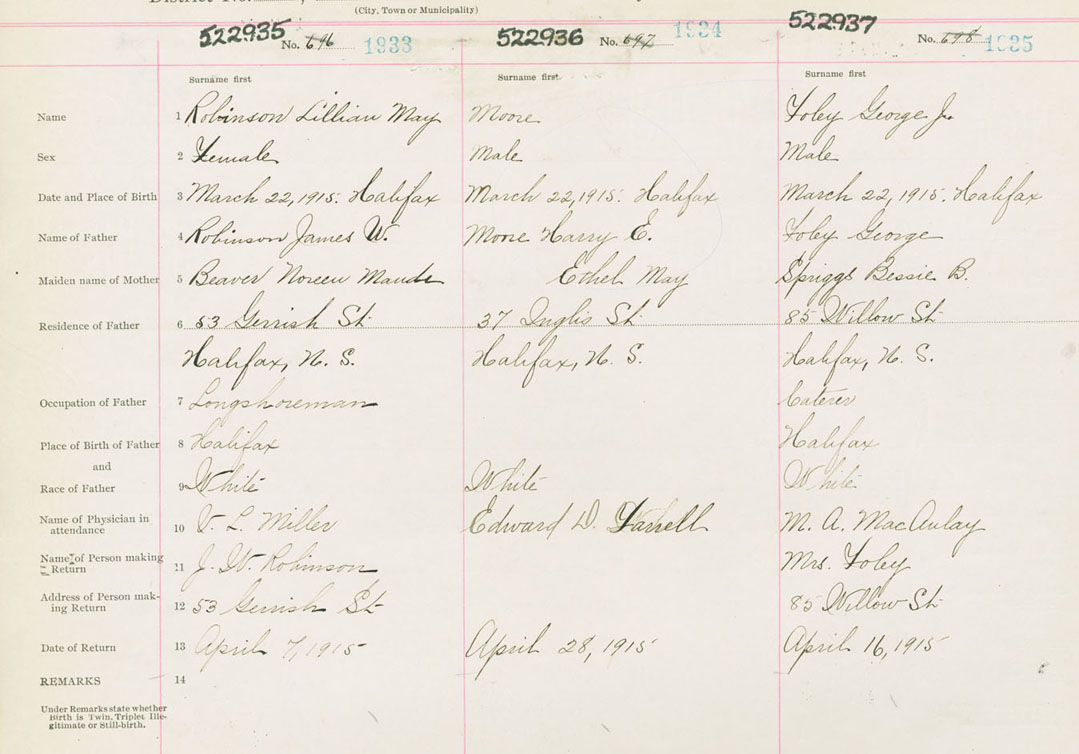 (City, Town or Municipality)
522935 No. 696 1933 522936 No. 697 1934 522937 No. 698 1935
Surname first Surname first Surname first
Name 1 Robinson Lillian May Moore Foley George Jr.
Sex 2 Female Male Male
Date and Place of Birth 3 March 22, 1915. Halifax March 22, 1915. Halifax March 22, 1915. Halifax
Name of Father 4 Robinson James W. Moore Harry E. Foley George
Maiden name of Mother 5 Beaver Noreen Maude Ethel May Spriggs Bessie B.
Residence of Father 6 53 Gerrish St. 37 Inglis St. 85 Willow St.
Halifax, N. S. Halifax, N. S. Halifax, N. S.
Occupation of Father 7 Longshoreman Caterer
Place of Birth of Father 8 Halifax Halifax
and
Race of Father 9 White White White
Name of Physician in
attendance 10 V. L. Miller Edward D. Farrell M. A. MacAulay
Name of Person making
Return 11 J. W. Robinson Mrs. Foley
Address of Person mak-
ing Return 12 53 Gerrish St. 85 Willow St.
Date of Return 13 April 7, 1915 April 28, 1915 April 16, 1915
REMARKS 14
Under Remarks state whether
Birth is Twin, Triplet Ille-
gitimate or Still-birth.